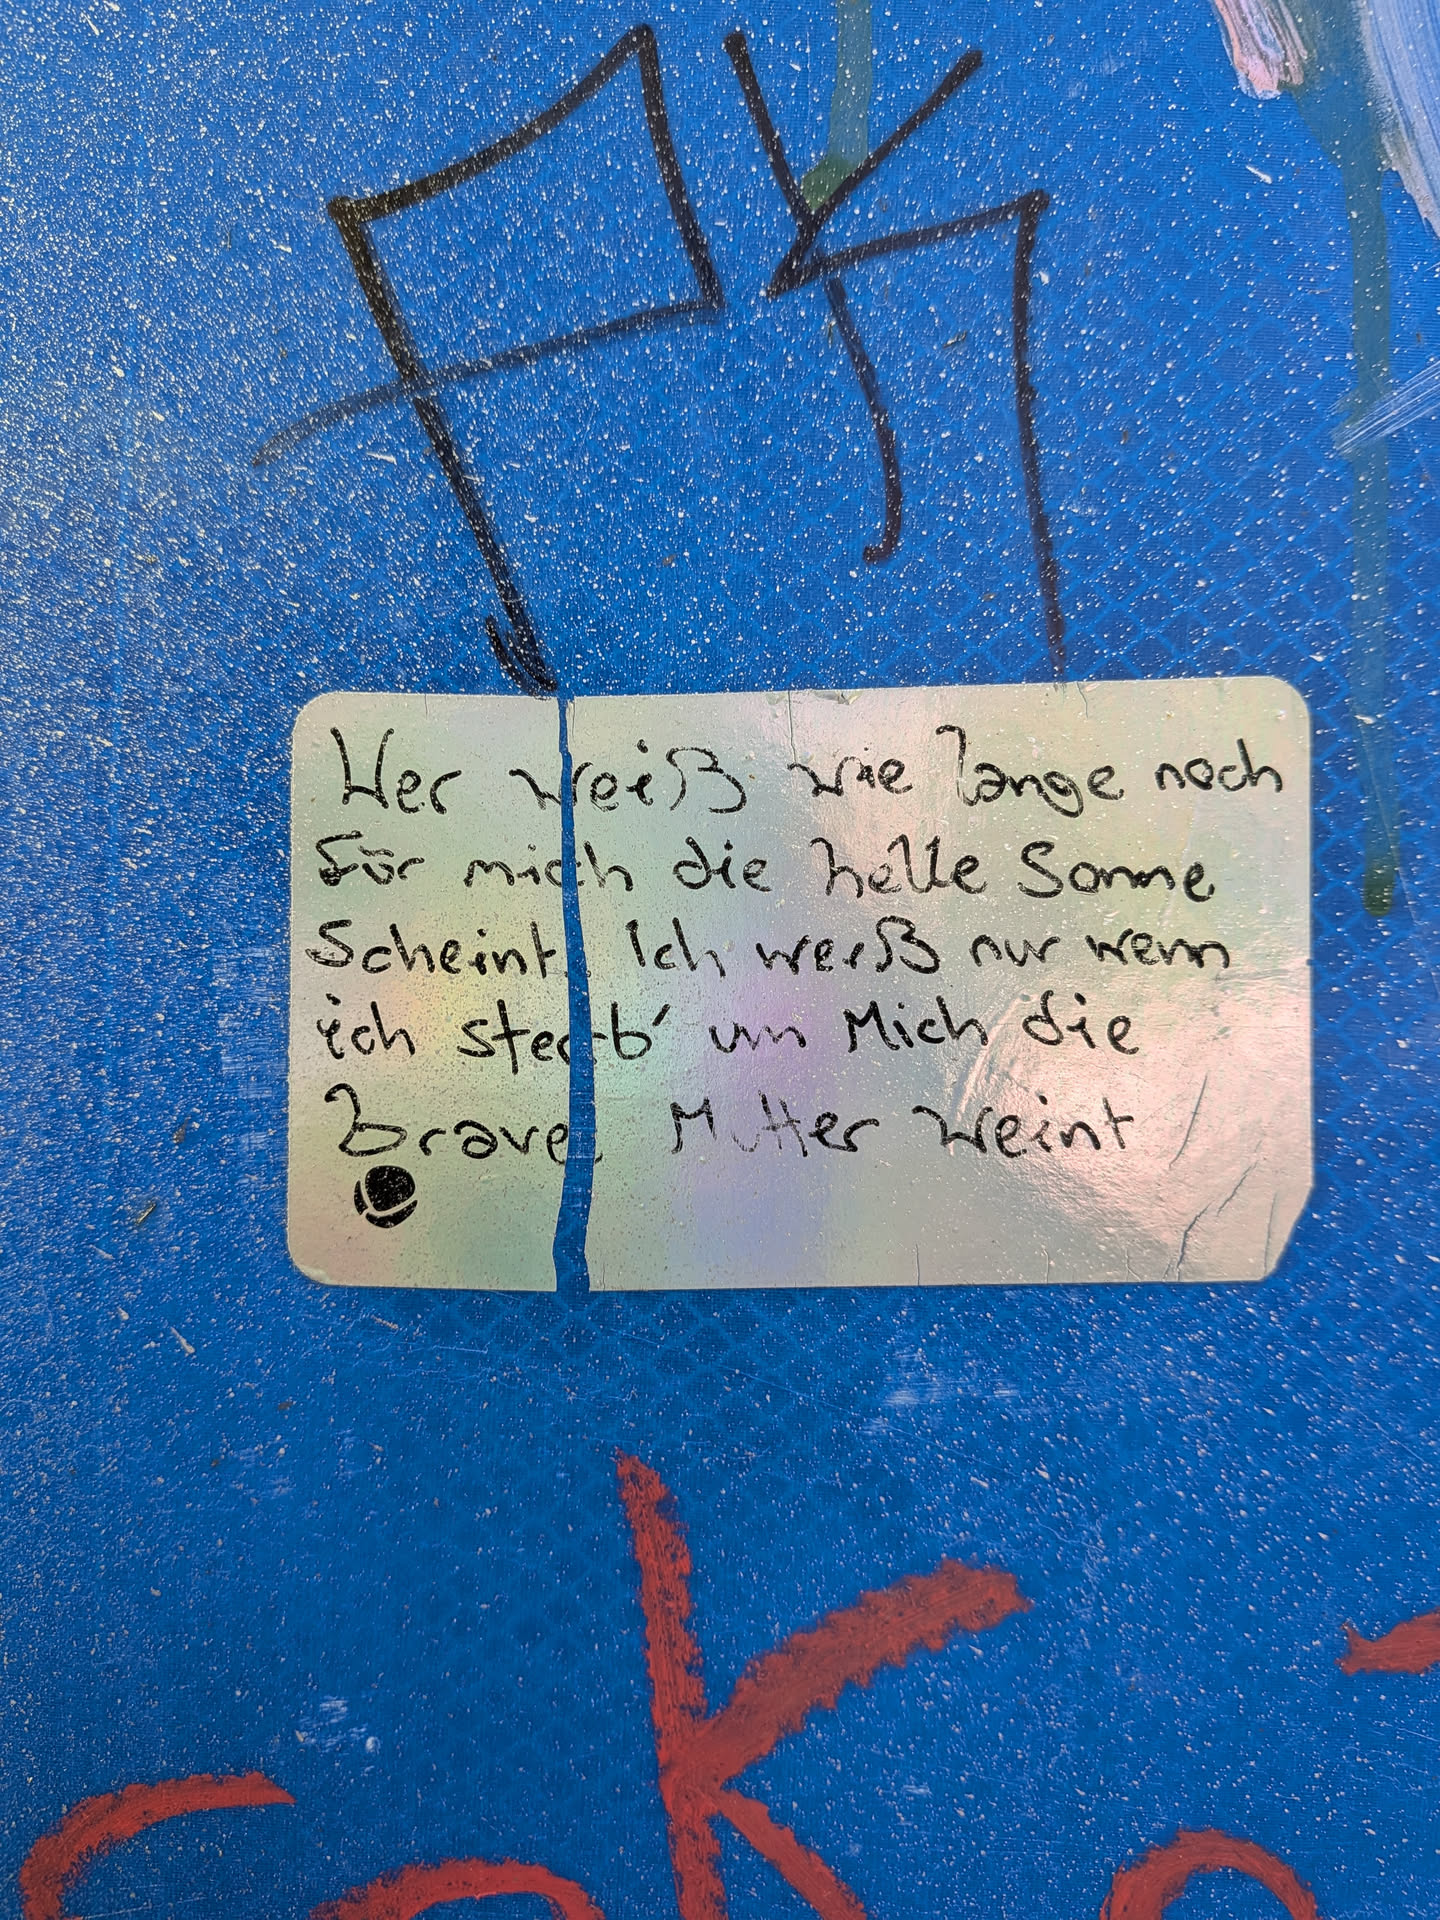 Wer weiß wie lange noch
für mich die helle Sonne
Scheint. Ich weiß nur wenn
ich sterb' um Mich die
Brave Mutter weint
K